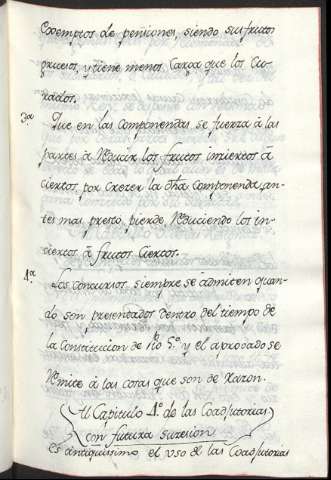 exemptos de penciones, siendo sus frutos
gruesos, y tiene menos Carga que los Cu-
rados.
3ª Que en las Componendas se fuerza à las
partes à Reducir los frutos inciertos à
ciertos, por Crezer la dhã Componenda, an-
tes mas presto, pierde, Reduciendo los in-
ciertos à frutos Ciertos.
4ª Los Concursos siempre se admiten quan-
do son presentados dentro del tiempo de
la Constitucion de Pio 5º y el aprovado se
Remite à las cosas que son de Razon.
Al Capitulo 4º de las Coadjutorias
con futura sucesion
Es antiquissimo el uso de las Coadjutorias